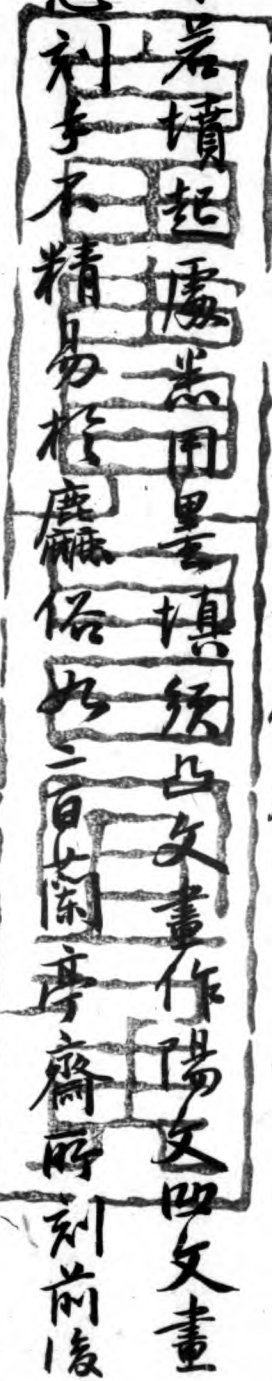 若墳起處悉用墨填須凸文畫作陽文凹文畫
刻手不精易於麤俗如二百蘭亭齋所刻前後